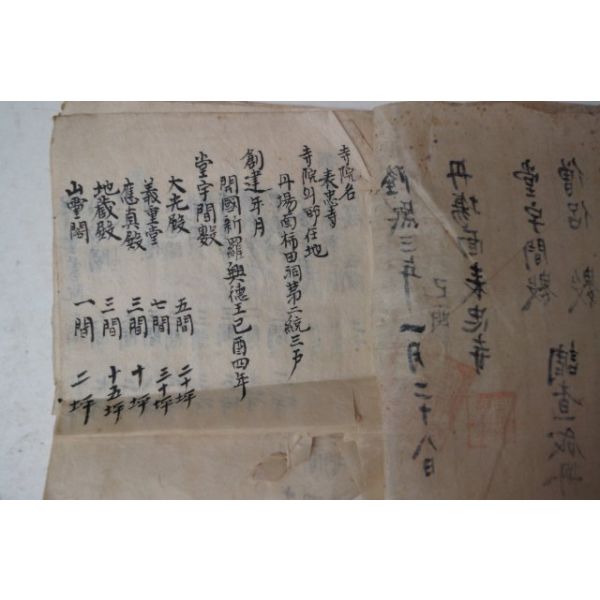 丹場面表忠寺
隆熙三年 一月二十八日
寺院名
表忠寺
寺院의 所在地
丹場面柿田洞第二統三戶
創建年月
開國新羅興德王己酉四年
堂宇間數
大光殿 五間 二十坪
義重堂 七間 三十坪
應真殿 三間 十坪
地蔵殿 三間 十五坪
山靈閣 一間 二坪